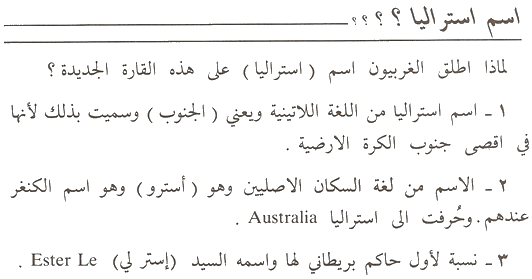 اسم استراليا ؟ ؟ ؟ ؟
لماذا اطلق الغربيون اسم ( استراليا ) على هذه القارة الجديدة ؟
١ ـ اسم استراليا من اللغة اللاتينية ويعني ( الجنوب ) وسميت بذلك لأنها
في اقصى جنوب الكرة الارضية .
٢ ـ الاسم من لغة السكان الاصليين وهو ( أسترو ) وهو اسم الكنغر
عندهم . وحُرفت الى استراليا Australia .
٣ ـ نسبة لأول حاكم بريطاني لها واسمه السيد ( إستر لي ) Ester Le .